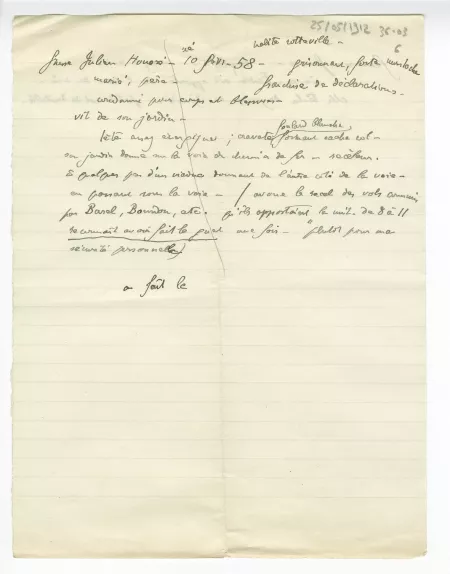 25/05/1912 36-03
6
né
Julien Honoré - 10 févr - 58 - grisonnant, forte moustache
marié, père - franchise de déclarations -
condamné pour coups et blessures -
vit de son jardin -
foulard blanche,
tête assez énergique ; cravate formant cache col -
son jardin donne sur la voie de chemin de fer - recéleur.
à quelques pas d'un viaduc donnant de l'autre côté de la voie -
en passant sous la voie - / avoue le recel des vols commis
par Barel, Bourdon, etc. qu'ils apportaient la nuit. de 8 à 11
reconnaît avoir fait le guet une fois - "plutôt pour ma
sécurité personnelle"
a fait le